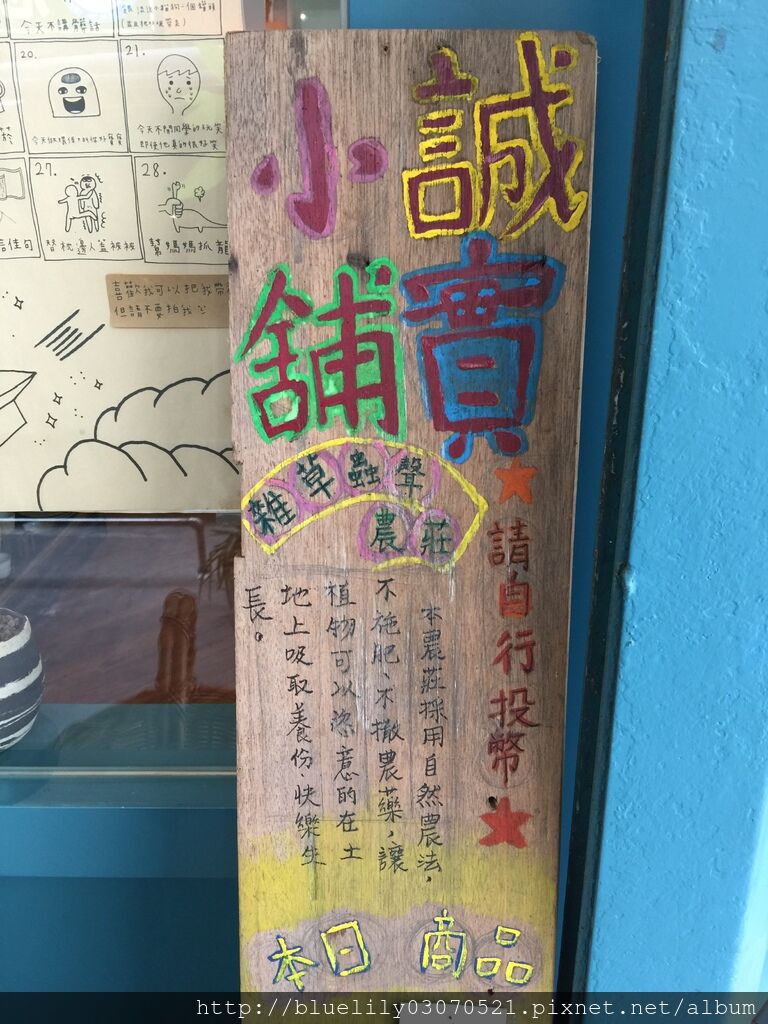 今天不講髒話
20.
21.
今天不開同學的玩笑
即使他真的很好笑
菸
27.
28.
佳句
替枕邊人蓋被被
幫媽媽抓龍
喜歡我可以把我帶
但請不要拍我
誠實
小舖
雜草蟲聲
農莊
★請自行投幣★
本農莊採用自然農法,
不施肥、不撒農藥,讓
植物可以恣意的在土
地上吸取養份、快樂生
長。
本日 商品
http://bluelily03070521.pixnet.net/album